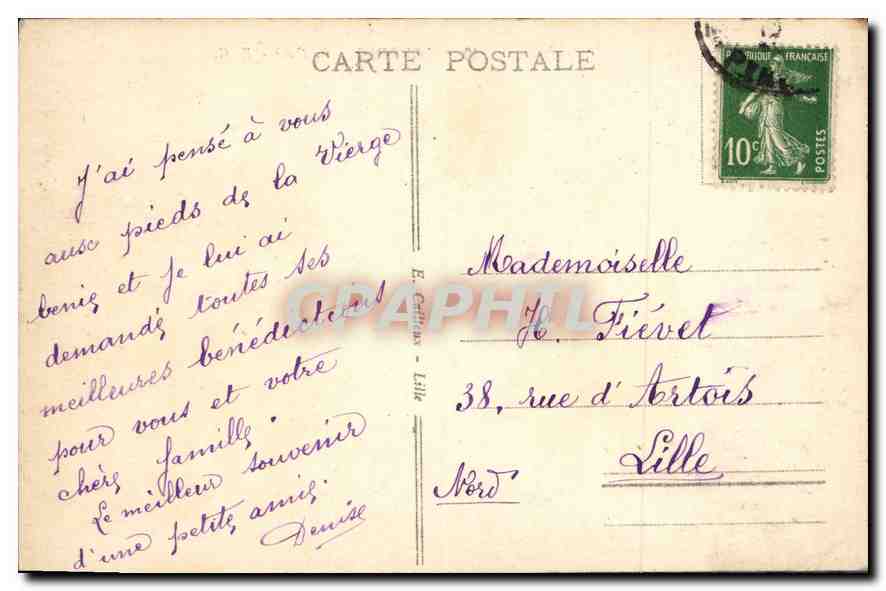 CARTE POSTALE
RÉPUBLIQUE FRANÇAISE
10c
POSTES
J'ai pensé à vous
aux pieds de la Vierge
benie et je lui ai
demandé toutes ses
meilleures bénédictions
pour vous et votre
chère famille.
Le meilleur souvenir
d'une petite amie.
Denise
E. Cailleux - Lille
CPAPHIL
Mademoiselle
H. Fiévet
38, rue d'Artois
Lille
Nord